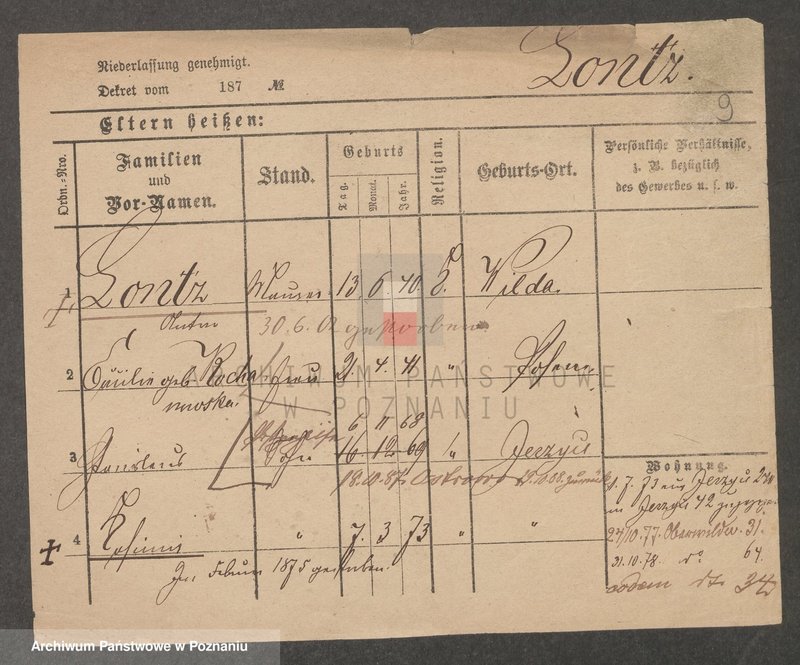 Niederlassung genehmigt.
Dekret vom 187 №
Lontz.
9
Eltern heißen:
Ordn.-Nro.
Familien
und
Vor-Namen.
Stand.
Geburts
Tag.
Monat.
Jahr.
Religion.
Geburts-Ort.
Persönliche Verhältnisse,
z. B. bezüglich
des Gewerbes u. s. w.
1 Lontz Maurer 13 6 40 Wilda.
Anton 30.6.02 gestorben.
2 Cäcilie geb. Rocha Frau 21. 4. 41 " Posen
nowska.
6 11 68
3 Stanislaus Sohn 16 12 69 " Jerzyce
18.10.87 Ostrowo 19.10.08 zurück
4 " 7. 3 73 " "
Im Februar 1875 gestorben.
Wohnung.
7. 73 aus Jerzyce
Jerzyce 42
24/10.77. Oberwilda. 31.
31.10.78. do 64.
eodem do 34
ARCHIWUM PAŃSTWOWE
W POZNANIU
Archiwum Państwowe w Poznaniu